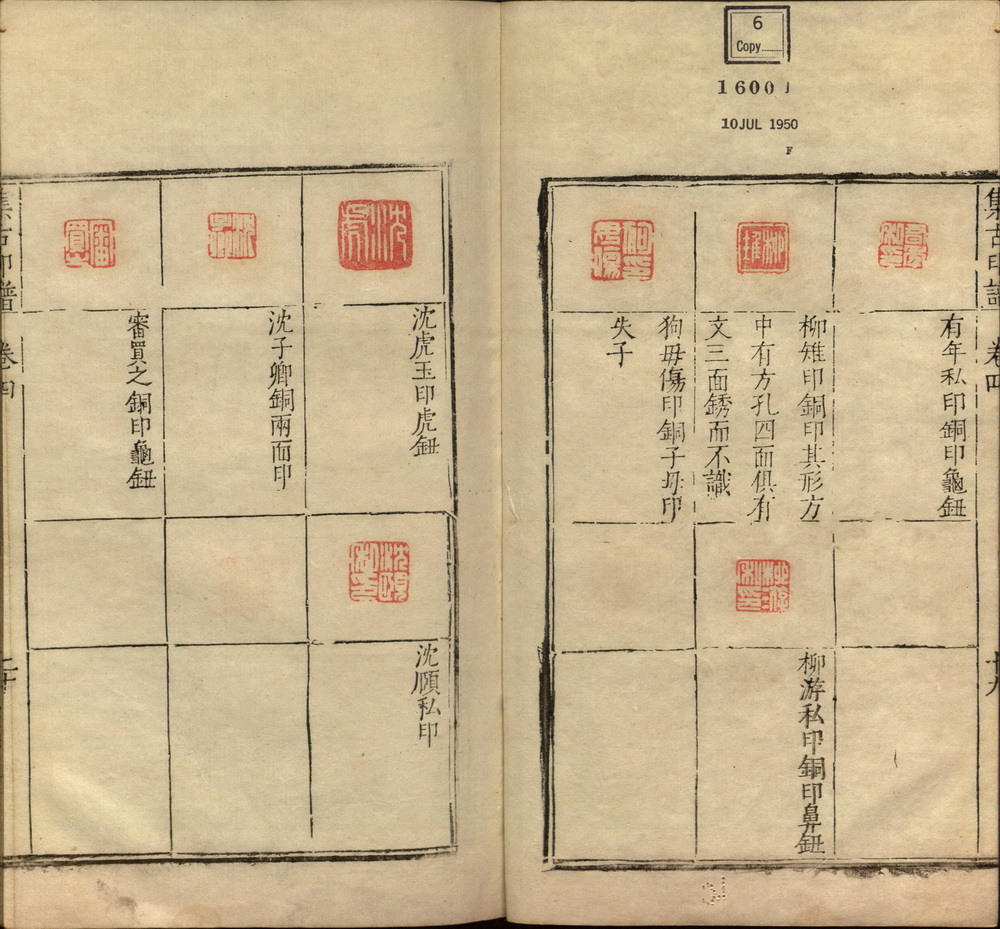 6
Copy
1600 J
10JUL 1950
F
集古印譜
卷四
十九
有年私印銅印龜鈕
柳雉印銅印其形方
中有方孔四面俱有
文三面銹而不識
柳游私印銅印鼻鈕
狗毋傷印銅子母印
失子
沈虎玉印虎鈕
沈頤私印
沈子卿銅兩面印
審買之銅印龜鈕
集古印譜
卷四
二十